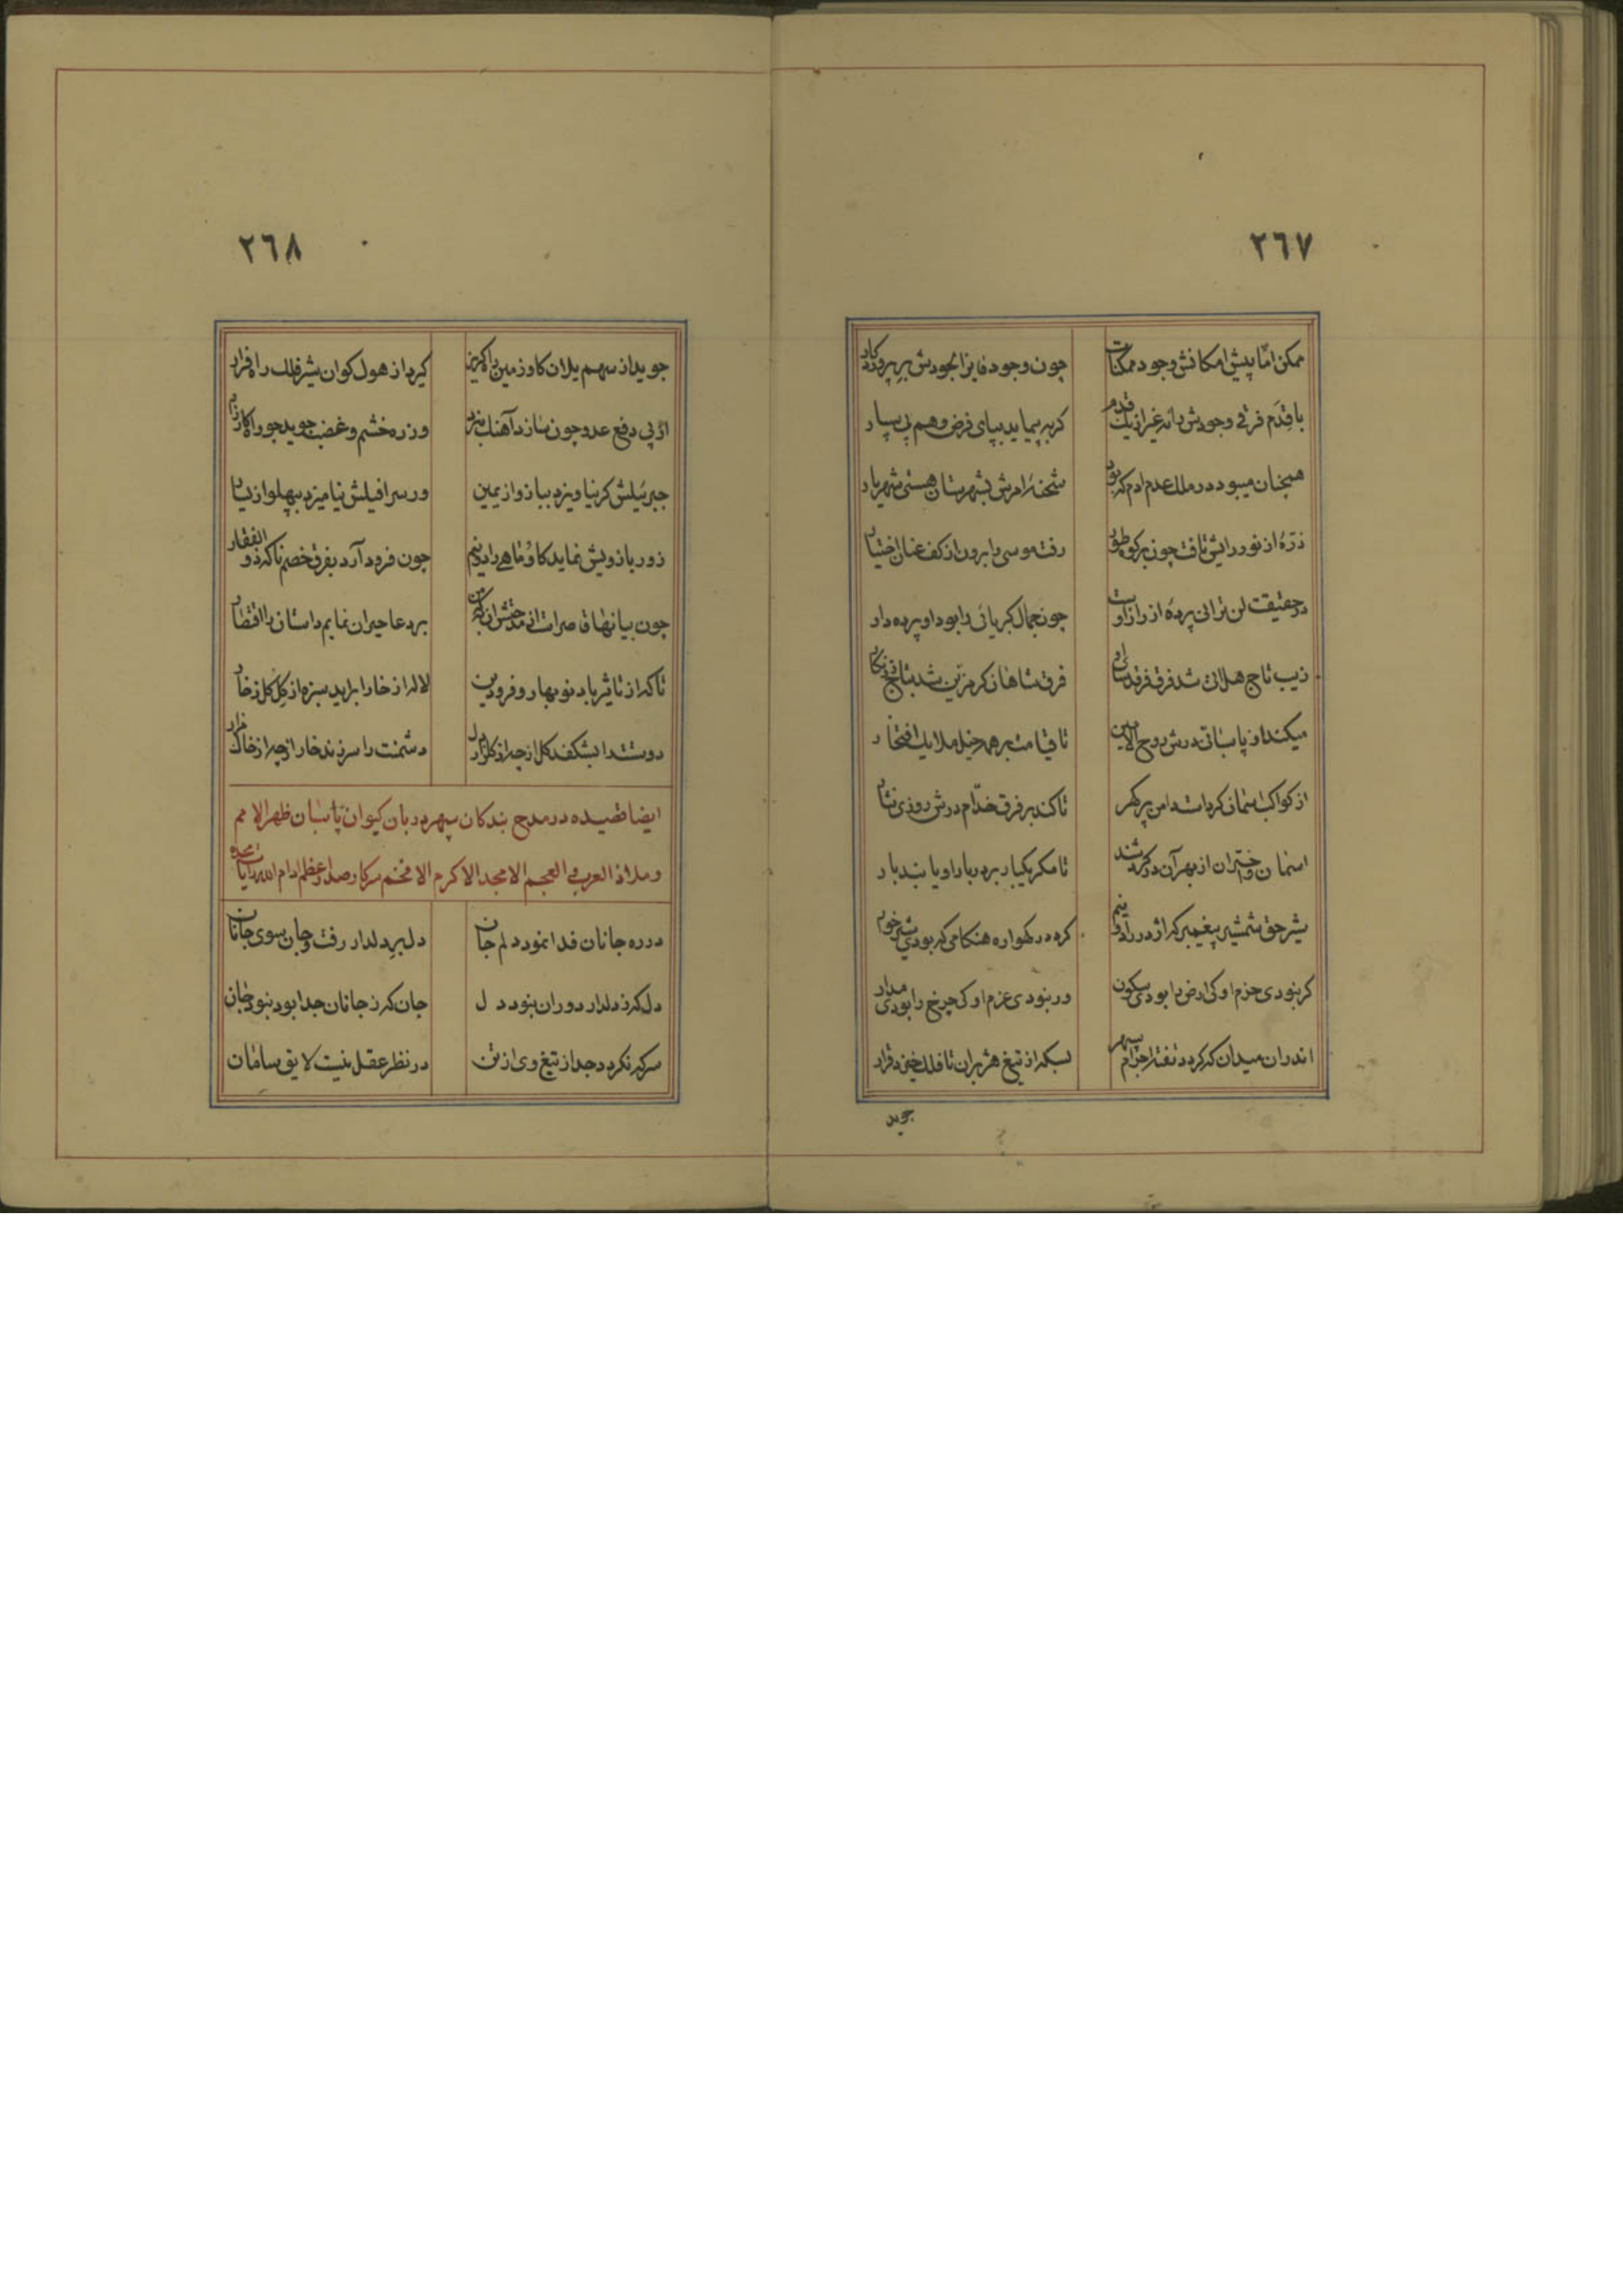 ٢٦٧
ممکن امّا پیش امکانش وجود ممکنات
چون وجود فایز الجودش بر پروردکار
با قِدَم فرقی وجودش داند غیر از یک قدم
کر به پیماید بپای فرض و هم پی سپار
همچنان میبود در ملک عدم ادم که بود
شحنهٔ امرش بشهرستان هستی شهریار
ذرّهٔ از نور رایش تافت چون بر کوه طور
رفت موسی را برون از کف عنان اختیار
در حقیقت لن ترانی پردهٔ از راز اوست
چون جمال کبریائی را بود او پرده دار
زیب تاج هل اتی شد فرق فرقدسای او
فرق شاهان کر مزین شد بتاج زرنکار
میکند از پاسبانی درش روح الامین
تا قیامت بر همه خیل ملایک افتخار
از کواکب اسمان کر داشت دامن پر کهر
تا کند بر فرق خدّام درش روزی نثار
اسمان و اختران از بهر آن در کردشند
تا مکر یکبار بر دربار او یابند بار
شیر حق شمشیر پیغمبر که اژدر را دو نیم
کرد در کهواره هنکامی که بودی شیرخوار
کر نبودی حزم او کی ارض را بودی سکون
ور نبودی عزم او کی چرخ را بودی مدار
اندر ان میدان که کردد تفته اجرام سپهر
بسکه از تیغ هژبران تا فلک خیزد شرار
جوید
٢٦٨
جوید از سهم یلان کاو زمین راه کریز
کیرد از هول کوان شیر فلک راه فرار
از پی دفع عدو چون سازد آهنک نبرد
وز ره خشم و غضب جوید چو راه کارزار
جبرئیلش کر نیاویزد ببازو از یمین
ور سرافیلش نیامیزد بپهلو از یسار
زور بازویش نماید کاو و ماهی را دو نیم
چون فرود آرد بفرق خصم ناکه ذوالفقار
چون بیانها قاصرات از مدحتش ان به که من
بر دعا حیران نمایم داستان را اقتصار
تا که از تاثیر باد نوبهار و فرودین
لاله از خارا براید سبزه از کِل کل ز خار
دوستت را بشکفد کل از چه از کلزار دل
دشمنت را سر زند خار از چه از خاک مزار
ایضا قصیده در مدح بندکان سپهر دربان کیوان پاسبان ظهر الامم
و ملاذ العرب و العجم الامجد الاکرم الافخم سرکار صدر اعظم ادام الله ایام مجده
در ره جانان فدا نمود دلم جان
دل بر دلدار رفت و جان سوی جانان
دل که ز دلدار دور ان نبود دل
جان که ز جانان جدا بود نبود جان
سر که نکردد جدا ز تیغ وی از تن
در نظر عقل نیست لایق سامان